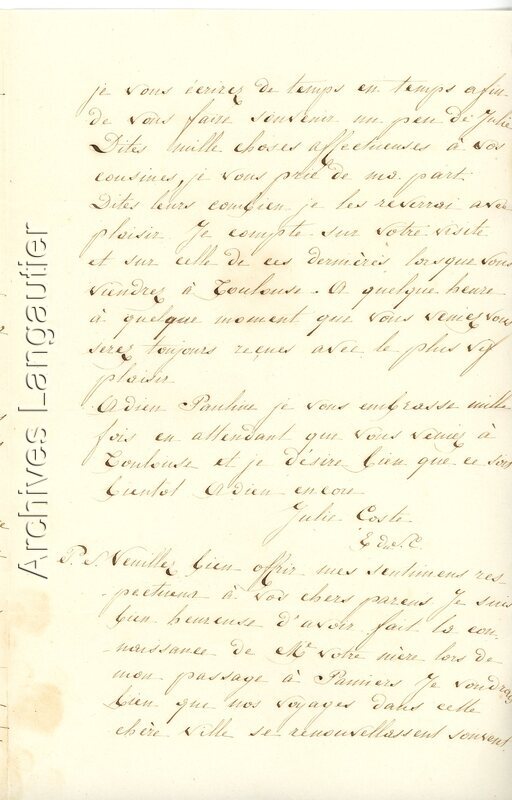 je vous écrirez de temps en temps afin
de vous faire souvenir un peu de Julie
Dites mille choses affectueuses à vos
cousines, je vous prie de ma part
Dites leurs combien je les reverrai avec
plaisir. Je compte sur votre visite
et sur celle de ces dernières lorsque vous
viendrez à Toulouse. A quelque heure
à quelque moment que vous veniez vous
serez toujours reçues avec le plus vif
plaisir
Adieu Pauline je vous embrasse mille
fois en attendant que vous veniez à
Toulouse et je désire bien que ce soit
bientot Adieu encore
Julie Coste
P. S. Veuillez bien offrir mes sentimens res
pectueux à vos chers parens Je suis
bien heureuse d'avoir fait la con
naissance de Me votre mère lors de
mon passage à Pamiers Je voudrais
bien que nos voyages dans cette
chère ville se renouvellassent souvent
Archives Langautier